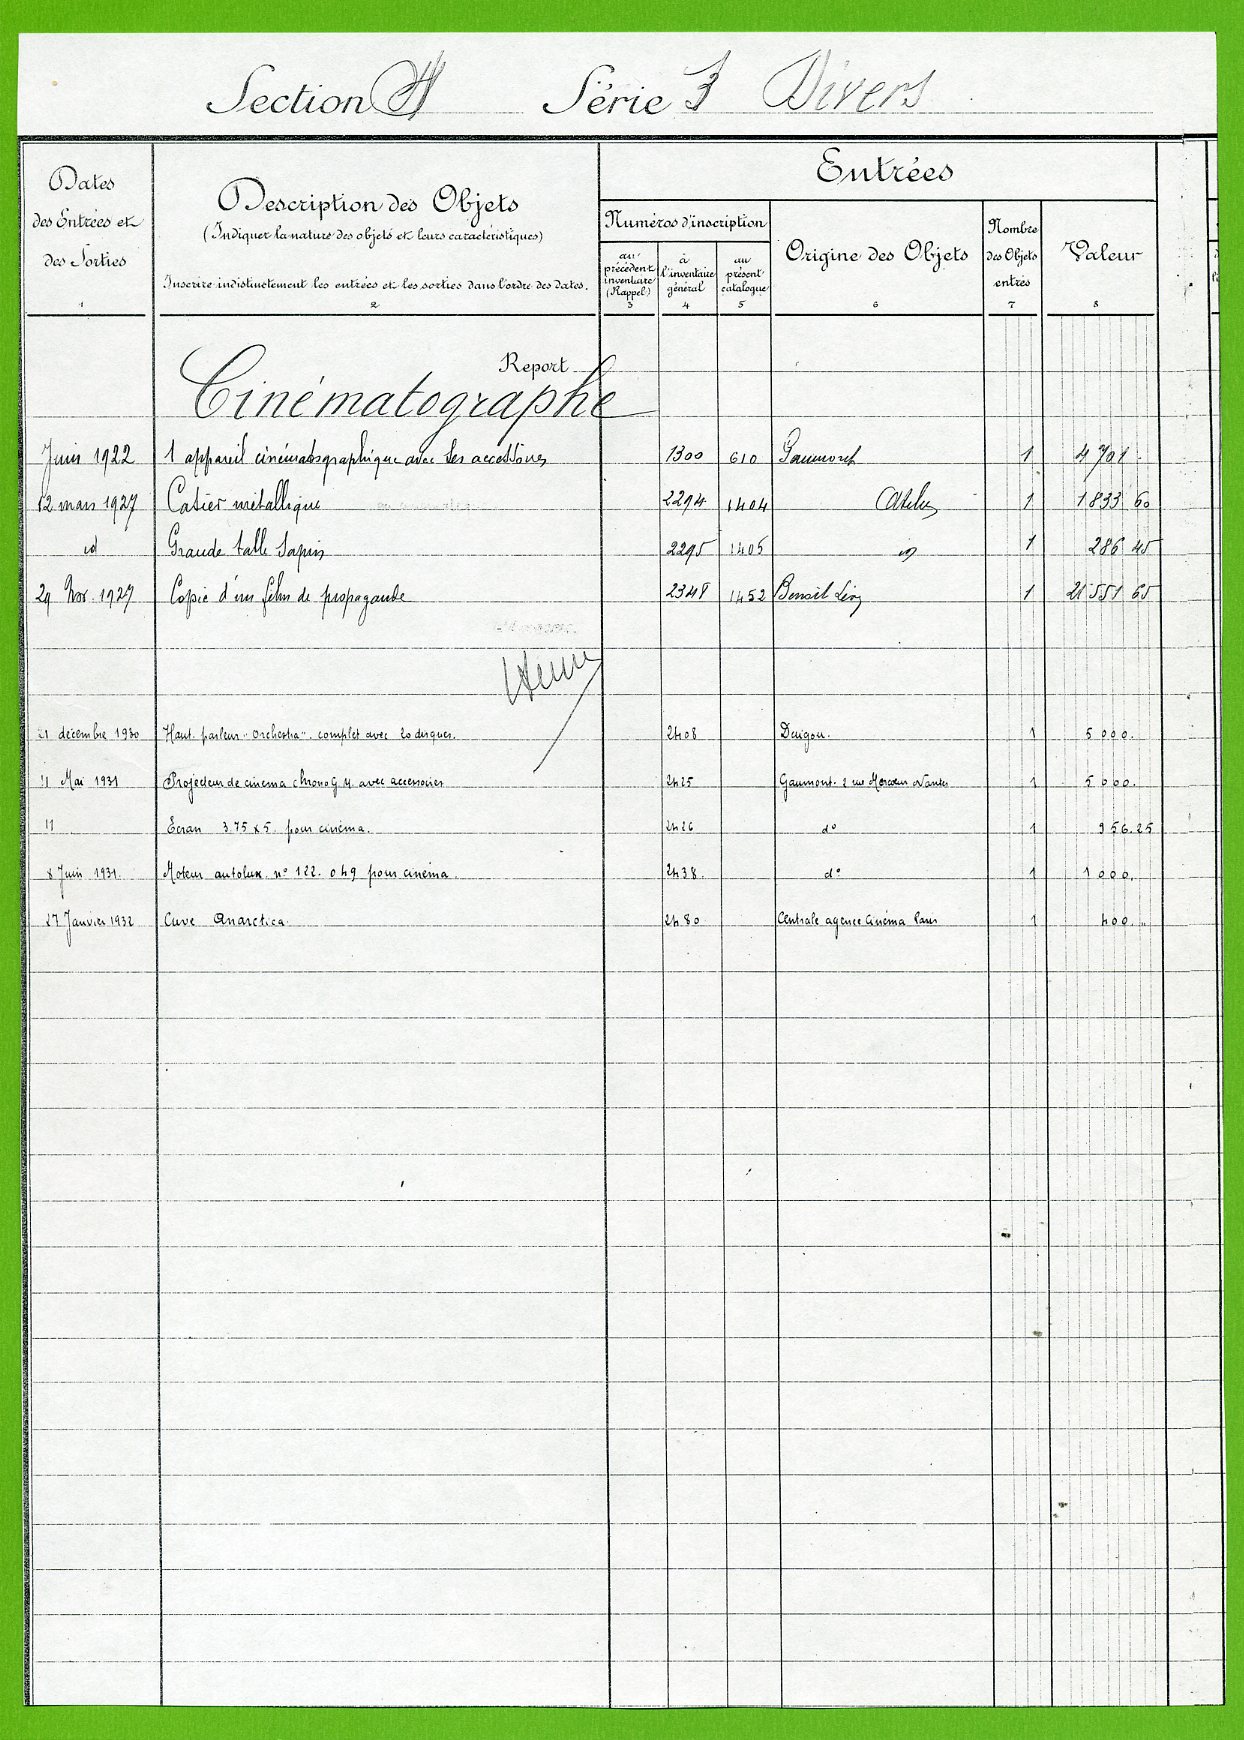 Section A Série 3 Divers
Dates
des Entrées et
des Sorties
1
Description des Objets
(Indiquer la nature des objets et leurs caractéristiques)
Inscrire indistinctement les entrées et les sorties dans l'ordre des dates.
2
Entrées
Numéros d'inscription
au précédent inventaire (Rappel)
3
à l'inventaire général
4
au présent catalogue
5
Origine des Objets
6
Nombre des Objets entrés
7
Valeur
8
Report
Cinématographe
Juin 1922 1 appareil cinématographique avec ses accessoires 1300 610 Gaumont 1 4701
12 mars 1927 Casier métallique 2294 1404 1 1833 60
id Grande table sapin 2295 1405 1 286 45
29 Nov. 1927 Copie d'un film de propagande 2348 1452 Benoit Levy 1 21551 65
21 décembre 1930 Haut-parleur "Orchestra" complet avec 20 disques. 2408 Duigou. 1 5000.
11 Mai 1931 Projecteur de cinema chrono G M avec accessoires 2425 Gaumont. 2 rue Mercoeur Nantes 1 5000.
11 Ecran 3.75 x 5. pour cinéma. 2426 do 1 956.25
8 Juin 1931. Moteur autolux no 122.049 pour cinéma. 2438. do 1 1000.
27 Janvier 1932 Cuve Anarctica 2480 Centrale agence Cinéma Paris 1 400. "